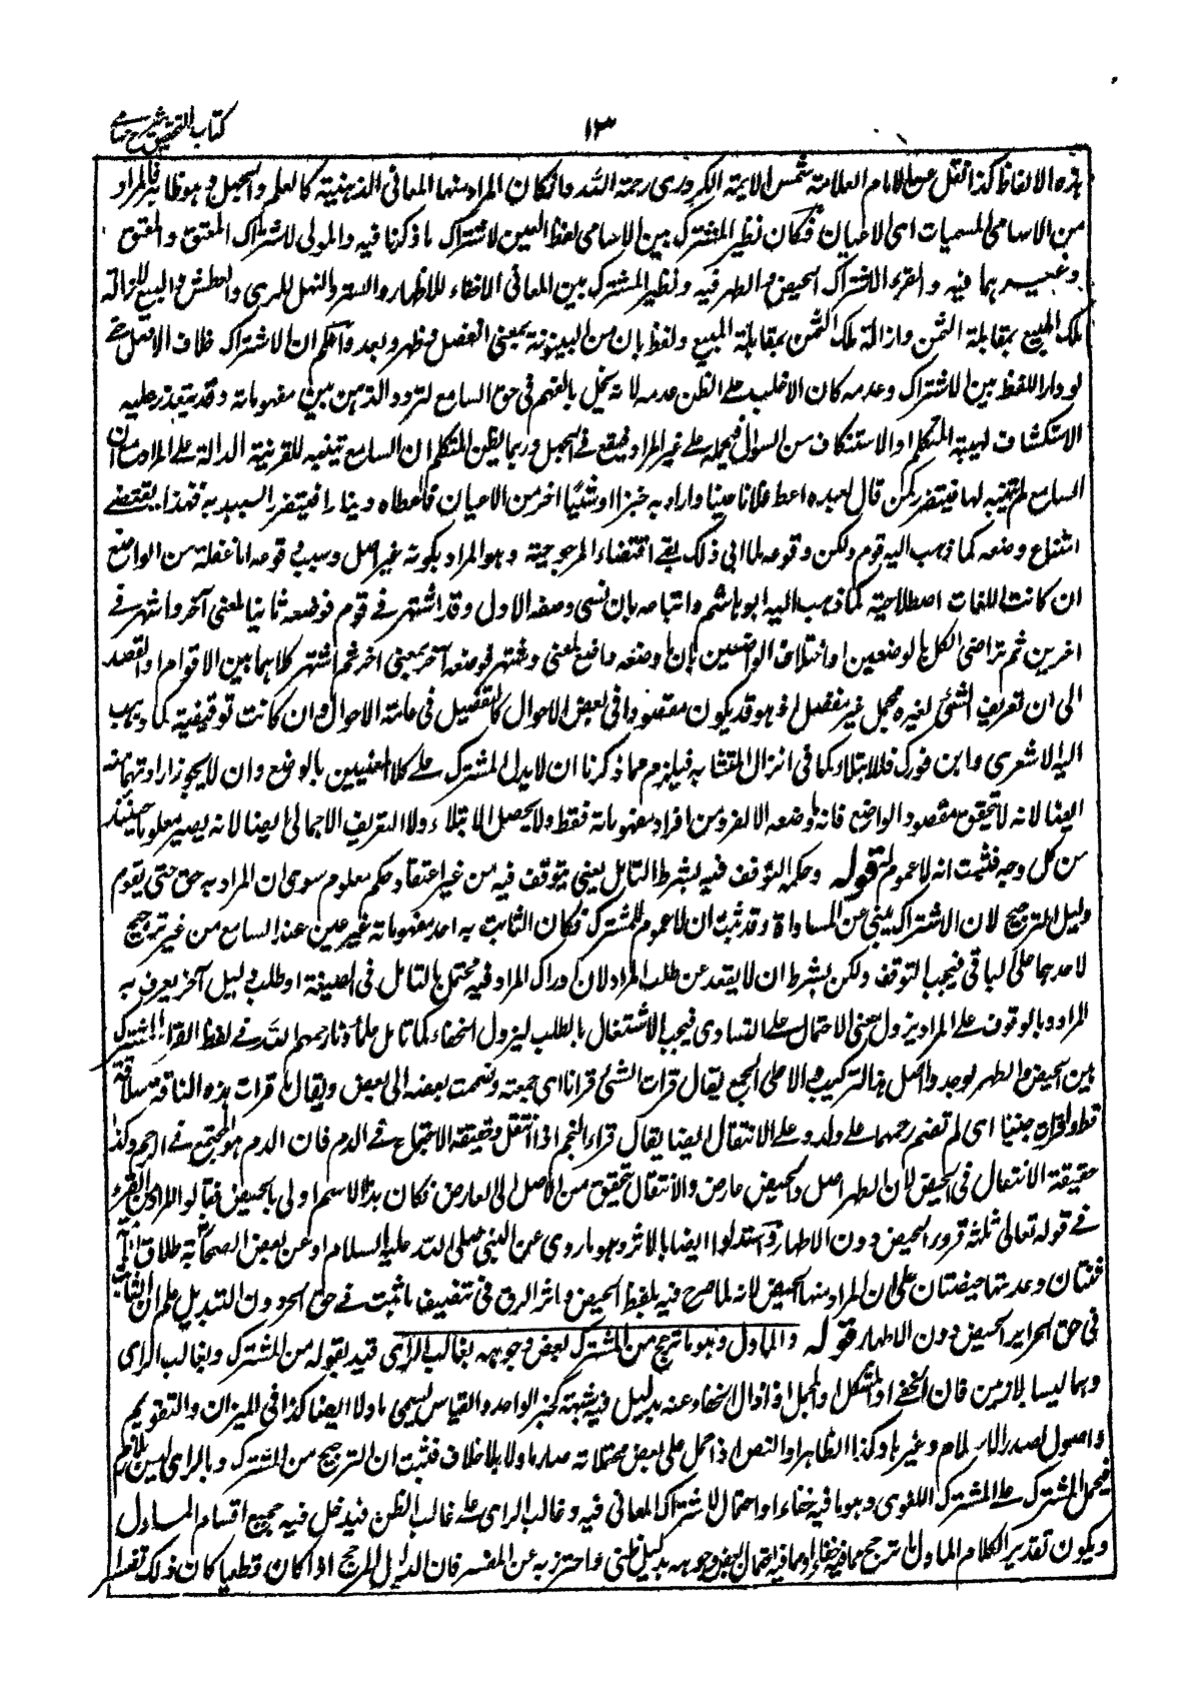 كتاب التحقيق شرح حسامي
١٣
هذه الالفاظ كذا نقل عن الامام العلامة شمس الايمة الكردري رحمة الله واذا كان المراد منها المعاني الذهنية كالعلم والجهل وهو ظاهر فالمراد
من الاسامي المسميات اى الاعيان فكان نظير المشترك بين الاسامى لفظ العين لاشتراك ما ذكرنا فيه والمولى لاشتراك المعتق والمعتق
وغيرهما فيه والقرء لاشتراك الحيض والطهر فيه ونظير المشترك بين المعانى الاخفاء للاظهار والستر والنهل للرى والعطش والبيع لازالة
ملك المبيع بمقابلة الثمن وازالة ملك الثمن بمقابلة المبيع ولفظ بان من البينونة بمعنى انفصل وظهر وبعد واعلم ان الاشتراك خلاف الاصل حتى
لو دار اللفظ بين الاشتراك وعدمه كان الاغلب على الظن عدمه لانه يخل بالفهم فى حق السامع لتردد الذهن بين مفهوماته وقد يتعذر عليه
الاستكشاف لهيبة المتكلم او الاستنكاف من السوال فيحمله على غير المراد فيقع فى الجهل وربما يظن المتكلم ان السامع يتنبه للقرينة الدالة على المراد مع ان
السامع لم يتنبه لها فيتضرر كمن قال لعبده اعط فلانا عينا واراد به خبزا او شيئا اخر من الاعيان فاعطاه دينارا فيتضرر السيد به فهذا يقتضى
امتناع وضعه كما ذهب اليه قوم ولكن وقوعه لما ابى ذلك بقى اقتضاء المرجوحية وهو المراد بكونه غير اصل وسبب وقوعه اما غفلة من الواضع
ان كانت اللغات اصطلاحية كما ذهب اليه ابو هاشم واتباعه بان نسى وضعه الاول وقد اشتهر فى قوم فوضعه ثانيا لمعنى آخر واشتهر فى
اخرين ثم تراضى الكل بالوضعين او اختلاف الواضعين بان وضعه واضع لمعنى واشتهر فوضعه آخر بمعنى اخر ثم اشتهر كلاهما بين الاقوام او القصد
الى ان تعريف الشئ لغيره مجمل غير مفصل اذ هو قد يكون مقصودا فى بعض الاحوال كالتفصيل فى عامة الاحوال وان كانت توقيفية كما ذهب
اليه الاشعرى وابن فورك فللابتلاء كما فى انزال المتشابه فيلزم مما ذكرنا ان لا يدل المشترك على كلا المعنيين بالوضع وان لا يجوز ارادتهما منه
ايضا لانه لا تحقق مقصود الواضع فانه ما وضعه الا لفرد من افراد مفهوماته فقط ولا يحصل الابتلاء ولا التعريف الاجمالى ايضا لانه يصير معلوما حينئذ
من كل وجه فثبت انه لا عموم له قوله وحكمه التوقف فيه بشرط التامل يعنى يتوقف فيه من غير اعتقاد حكم معلوم سوى ان المراد به حق حتى يقوم
دليل الترجيح لان الاشتراك ينبئ عن المساواة وقد ثبت ان لا عموم للمشترك فكان الثابت به احد مفهوماته غير عين عند السامع من غير ترجيح
لاحدهما على الباقى فيجب التوقف ولكن بشرط ان لا يقعد عن طلب المراد لان دراك المراد فيه محتمل بالتامل فى الصيغة او طلب دليل آخر يعرف به
المراد وبالوقوف على المراد يزول معنى الاحتمال على التساوى فيجب الاشتغال بالطلب ليزول الخفاء كما تامل علماؤنا رحمهم الله فى لفظ القرء المشترك
بين الحيض والطهر فوجدوا اصل هذا التركيب دالا على الجمع يقال قرات الشئ قرانا اى جمعته وضممت بعضه الى بعض ويقال ما قرات هذه الناقة سلاقة
قط وما قرات جنينا اى لم تضم رحمها على ولد وعلى الانتقال ايضا يقال قرء النجم اذا انتقل وحقيقة الاجتماع فى الدم فان الدم هو المجتمع فى الرحم وكذا
حقيقة الانتقال فى الحيض لان الطهر اصل والحيض عارض والانتقال تحقق من الاصل الى العارض فكان هذا الاسم اولى بالحيض فقالوا المراد من القرء
فى قوله تعالى ثلثة قروء الحيض دون الاطهار واستدلوا ايضا بالاثر وهو ما روى عن النبى صلى الله عليه السلام او عن بعض الصحابة طلاق الامة
ثنتان وعدتها حيضتان على ان المراد منها الحيض لانه لما صرح فيه بلفظ الحيض واثر الرق فى تنصيف ما ثبت فى حق الحر دون التبديل علم ان الثابت
فى حق الحراير الحيض دون الاطهار قوله والماول وهو ما ترجح من المشترك بعض وجوهه بغالب الراى قيد بقوله من المشترك وبغالب الراى
وهما ليسا بلازمين فان الخفى او المشكل او المجمل اذا زال الخفاء عنه بدليل فيه شبهة كخبر الواحد والقياس يسمى ماولا ايضا كذا فى الميزان والتقويم
واصول لصدر الاسلام وغيرها وكذا الظاهر والنص اذا حمل على بعض محتملاته صار ماولا بلا خلاف فثبت ان الترجيح من المشترك وبالراى ليس بلازم
فيحمل المشترك على المشترك اللغوى وهو ما فيه خفاء او احتمال لاشتراك المعانى فيه وغالب الراى على غالب الظن فيدخل فيه جميع اقسام الماول
ويكون تقدير الكلام الماول ما ترجح مما فيه خفاء او مما فيه احتمال بعض وجوهه بدليل ظنى واحترز به عن المفسر فان الدليل المرجح اذا كان قطعيا كان ذلك تفسيرا